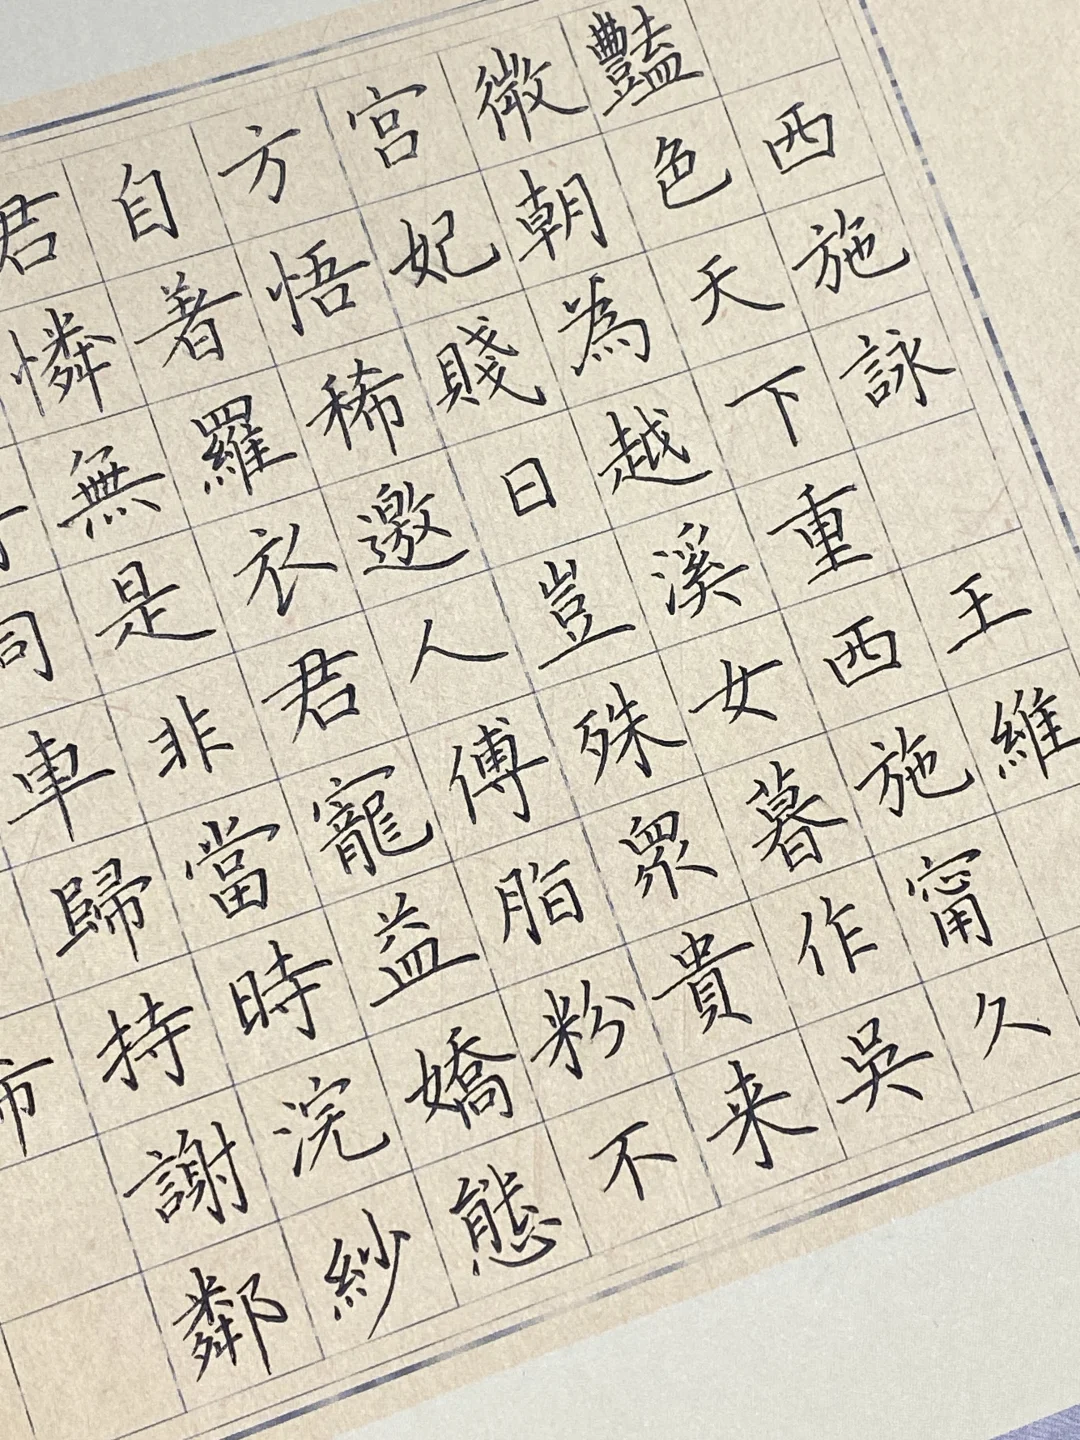 西施詠 王維
豔色天下重西施甯久
微朝為越溪女暮作吳
宮妃賤日豈殊眾貴来
方悟稀邀人傅脂粉不
自著羅衣君寵益嬌態
君憐無是非當時浣紗
同車歸持謝鄰